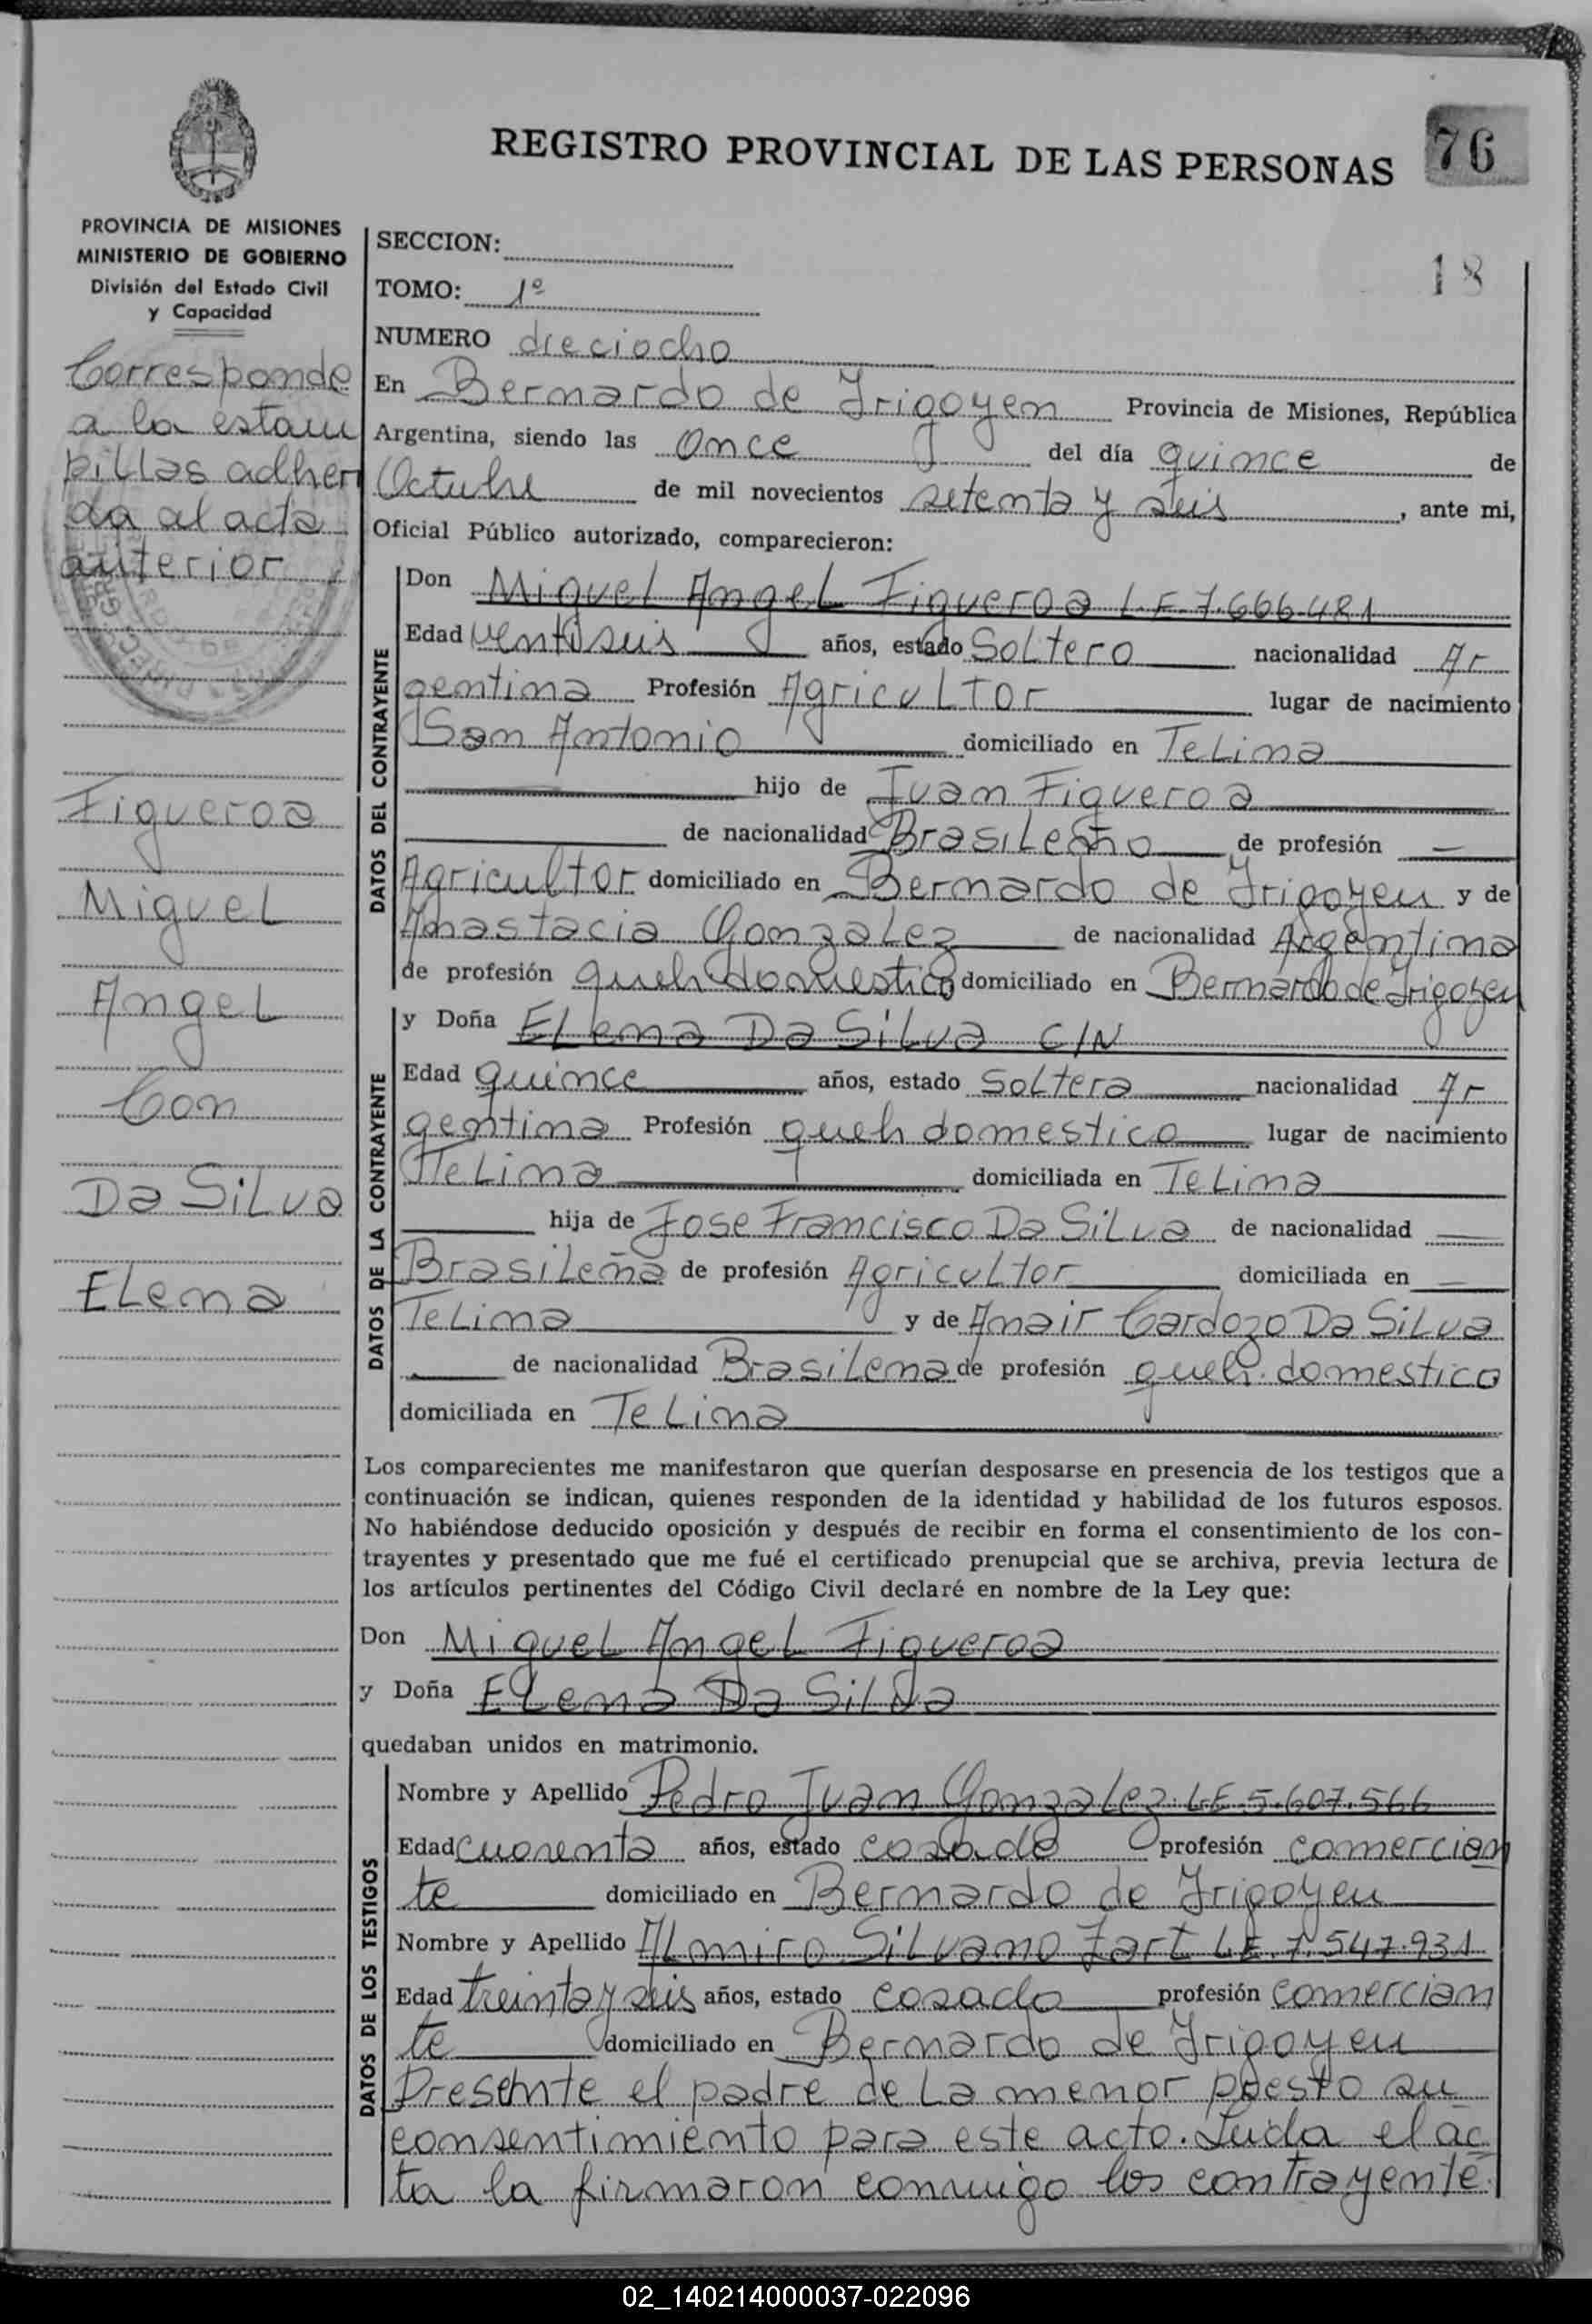 REGISTRO PROVINCIAL DE LAS PERSONAS
76
PROVINCIA DE MISIONES
MINISTERIO DE GOBIERNO
División del Estado Civil
y Capacidad
Corresponde
a la estam
pillas adheri
da al acta
anterior
Figueroa
Miguel
Angel
Con
Da Silva
Elena
SECCION:
18
TOMO: 1º
NUMERO dieciocho
En Bernardo de Irigoyen Provincia de Misiones, República
Argentina, siendo las Once del día quince de
Octubre de mil novecientos setenta y seis, ante mi,
Oficial Público autorizado, comparecieron:
DATOS DEL CONTRAYENTE
Don Miguel Angel Figueroa L.E 7.666.481
Edad ventiseis años, estado Soltero nacionalidad Ar
gentina Profesión Agricultor lugar de nacimiento
San Antonio domiciliado en Telina
hijo de Juan Figueroa
de nacionalidad Brasileño de profesión
Agricultor domiciliado en Bernardo de Irigoyen y de
Anastacia Gonzalez de nacionalidad Argentina
de profesión queh domestico domiciliado en Bernardo de Irigoyen
DATOS DE LA CONTRAYENTE
y Doña Elena Da Silva C/N
Edad quince años, estado Soltera nacionalidad Ar
gentina Profesión queh domestico lugar de nacimiento
Telina domiciliada en Telina
hija de Jose Francisco Da Silva de nacionalidad
Brasileña de profesión Agricultor domiciliada en
Telina y de Anair Cardozo Da Silva
de nacionalidad Brasilena de profesión queh. domestico
domiciliada en Telina
Los comparecientes me manifestaron que querían desposarse en presencia de los testigos que a
continuación se indican, quienes responden de la identidad y habilidad de los futuros esposos.
No habiéndose deducido oposición y después de recibir en forma el consentimiento de los con-
trayentes y presentado que me fué el certificado prenupcial que se archiva, previa lectura de
los artículos pertinentes del Código Civil declaré en nombre de la Ley que:
Don Miguel Angel Figueroa
y Doña Elena Da Silva
quedaban unidos en matrimonio.
DATOS DE LOS TESTIGOS
Nombre y Apellido Pedro Juan Gonzalez L.E 5.607.566
Edad cuarenta años, estado casado profesión comercian
te domiciliado en Bernardo de Irigoyen
Nombre y Apellido Almiro Silvano Zart L.E. 7.547.931
Edad treinta y seis años, estado casado profesión comercian
te domiciliado en Bernardo de Irigoyen
Presente el padre de la menor presto su
consentimiento para este acto. Leida el ac
ta la firmaron conmigo los contrayente
02_140214000037-022096